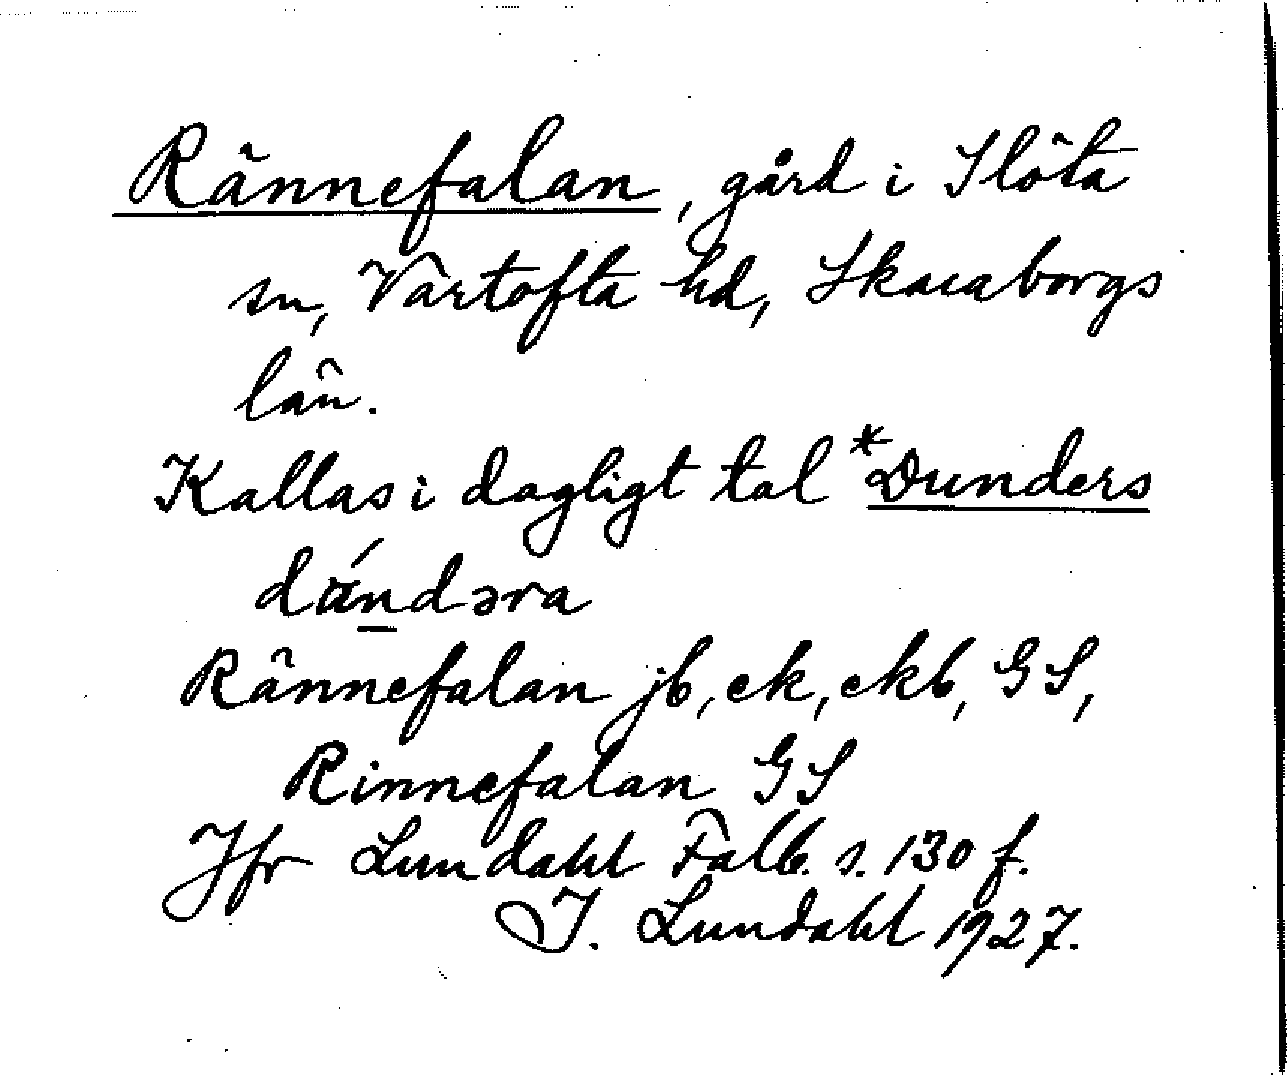 Rännefalan, gård i Slöta
sn, Vartofta hd, Skaraborgs
län.
Kallas i dagligt tal *Dunders
dǻndəra
Rännefalan jb, ek, ekb, GS,
Rinnefalan GS
Jfr Lundahl Falb. s. 130 f.
I. Lundahl 1927.